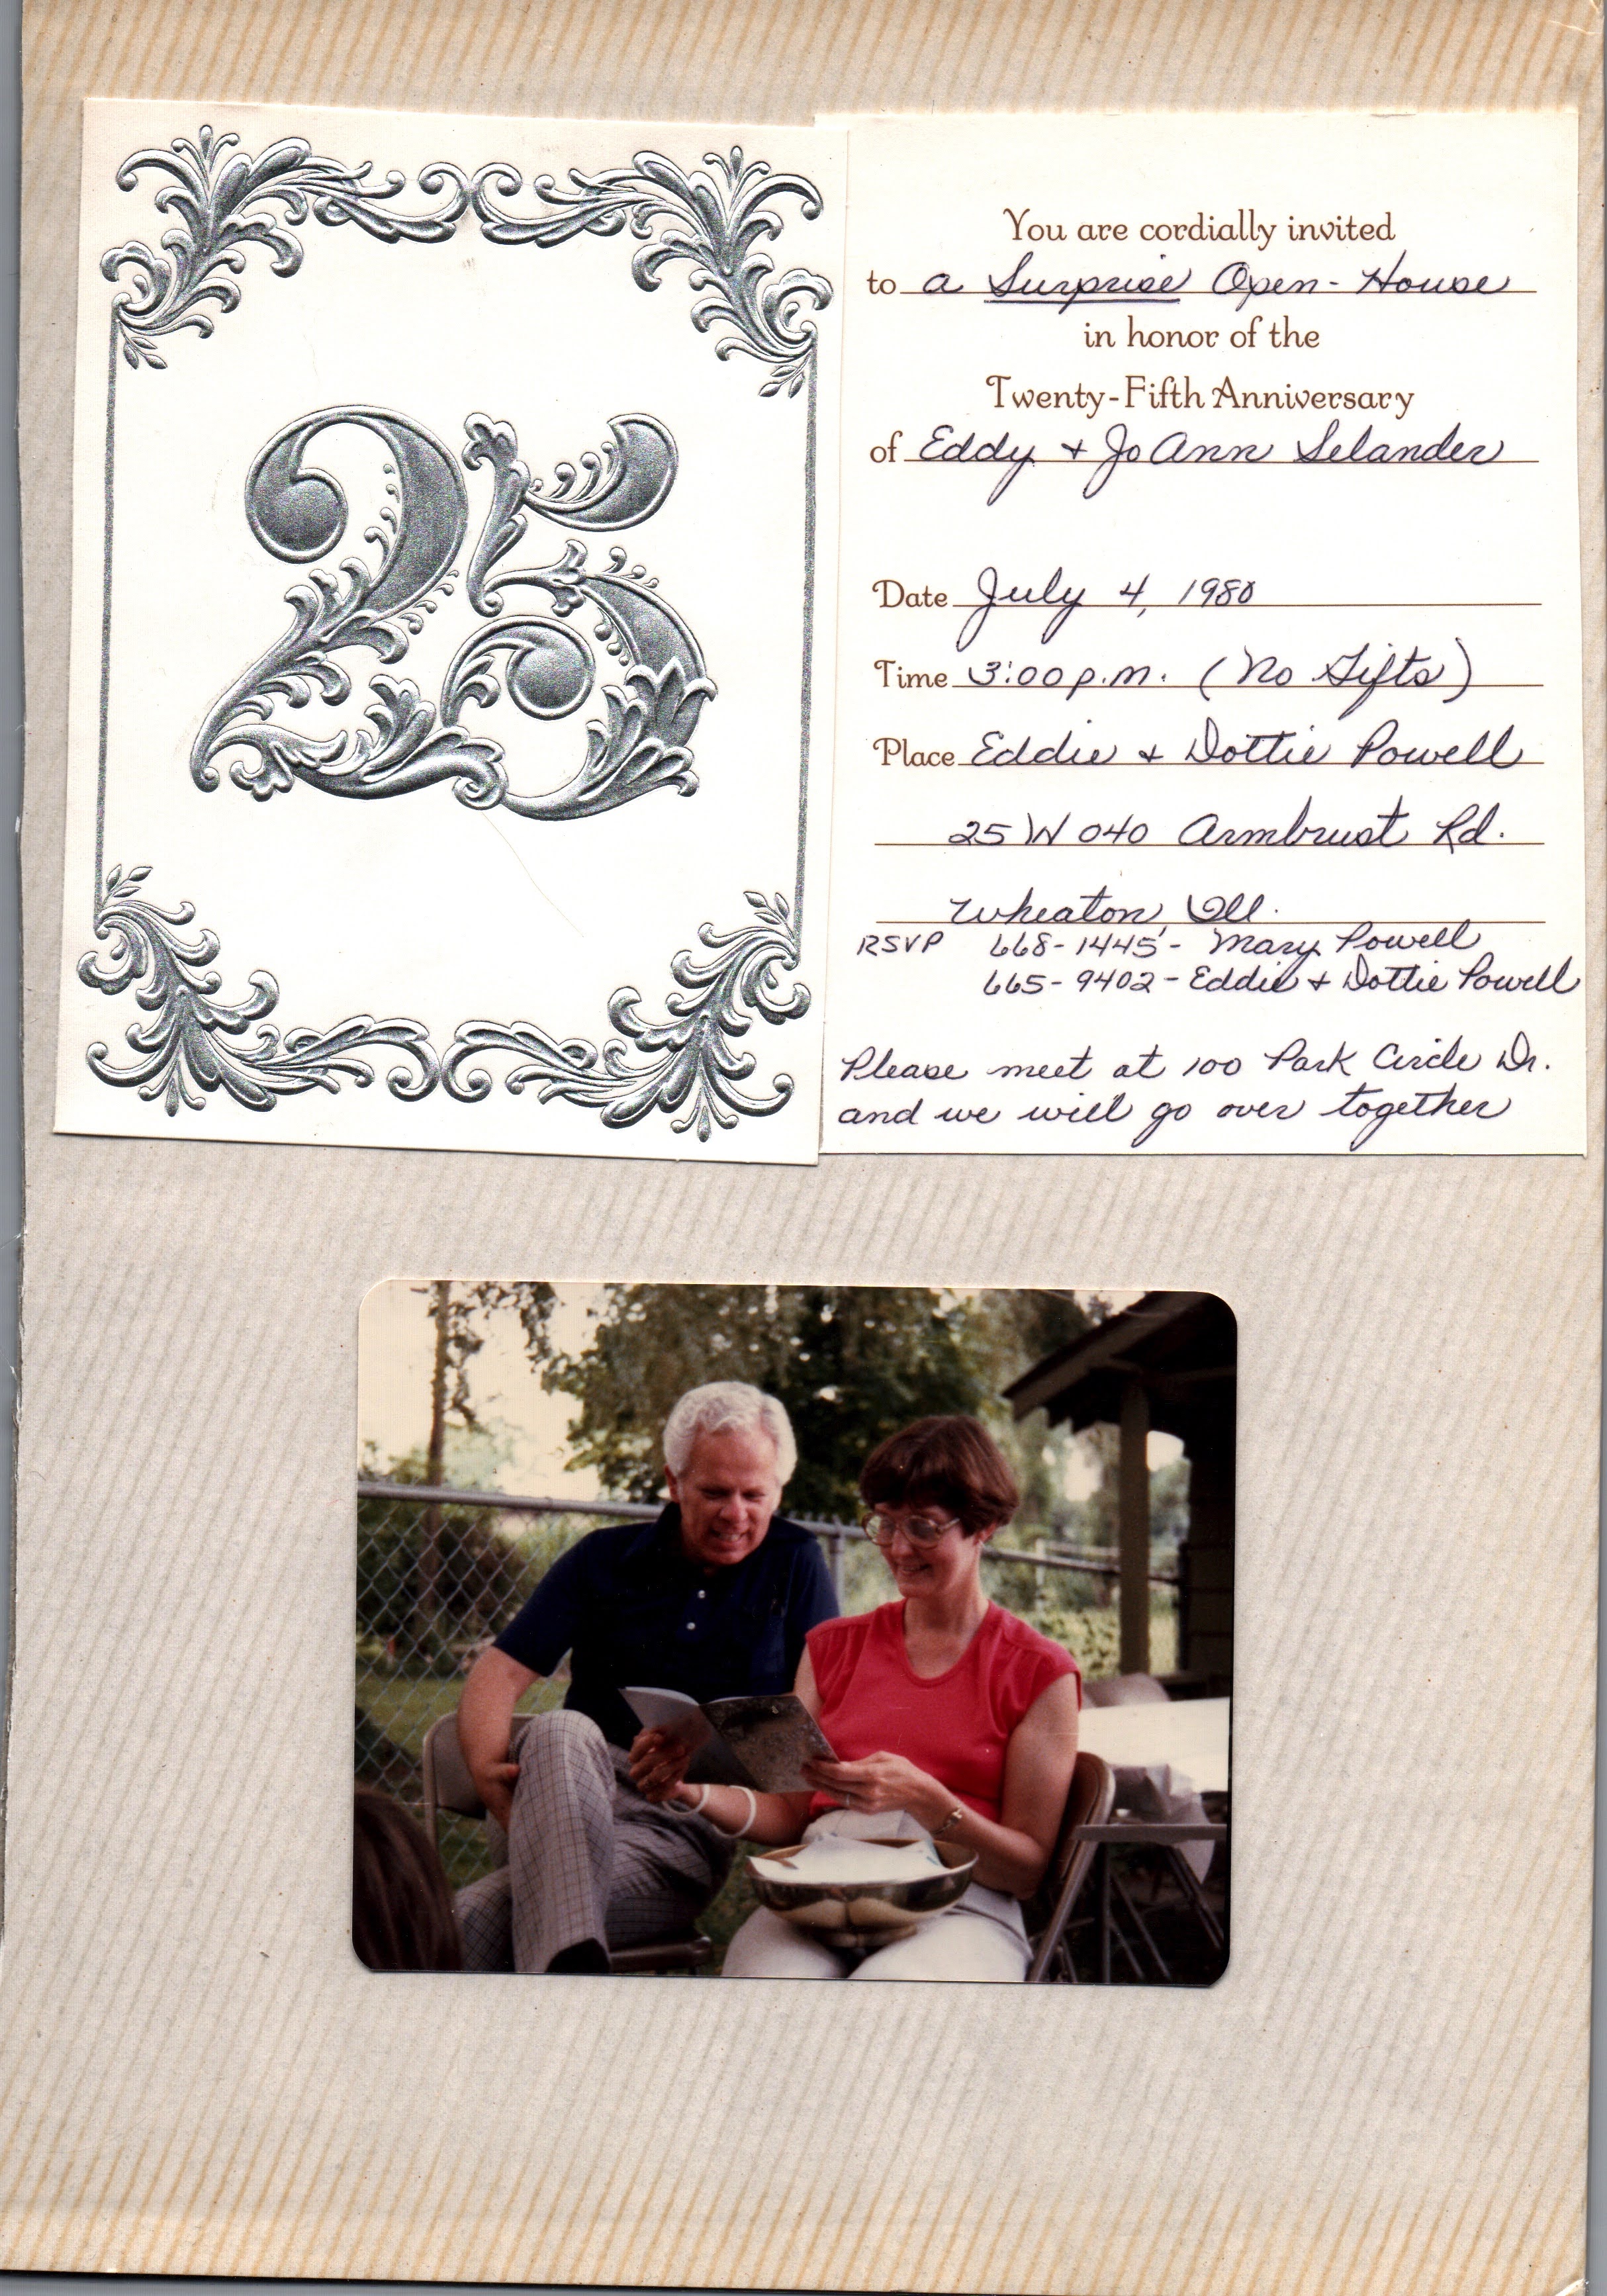 25
You are cordially invited
to a Surprise Open-House
in honor of the
Twenty-Fifth Anniversary
of Eddy + JoAnn Selander
Date July 4, 1980
Time 3:00 p.m. (No Gifts)
Place Eddie + Dottie Powell
25 W 040 Armbrust Rd.
Wheaton, Ill.
RSVP 668-1445 - Mary Powell
665-9402 - Eddie + Dottie Powell
Please meet at 100 Park Circle Dr.
and we will go over together